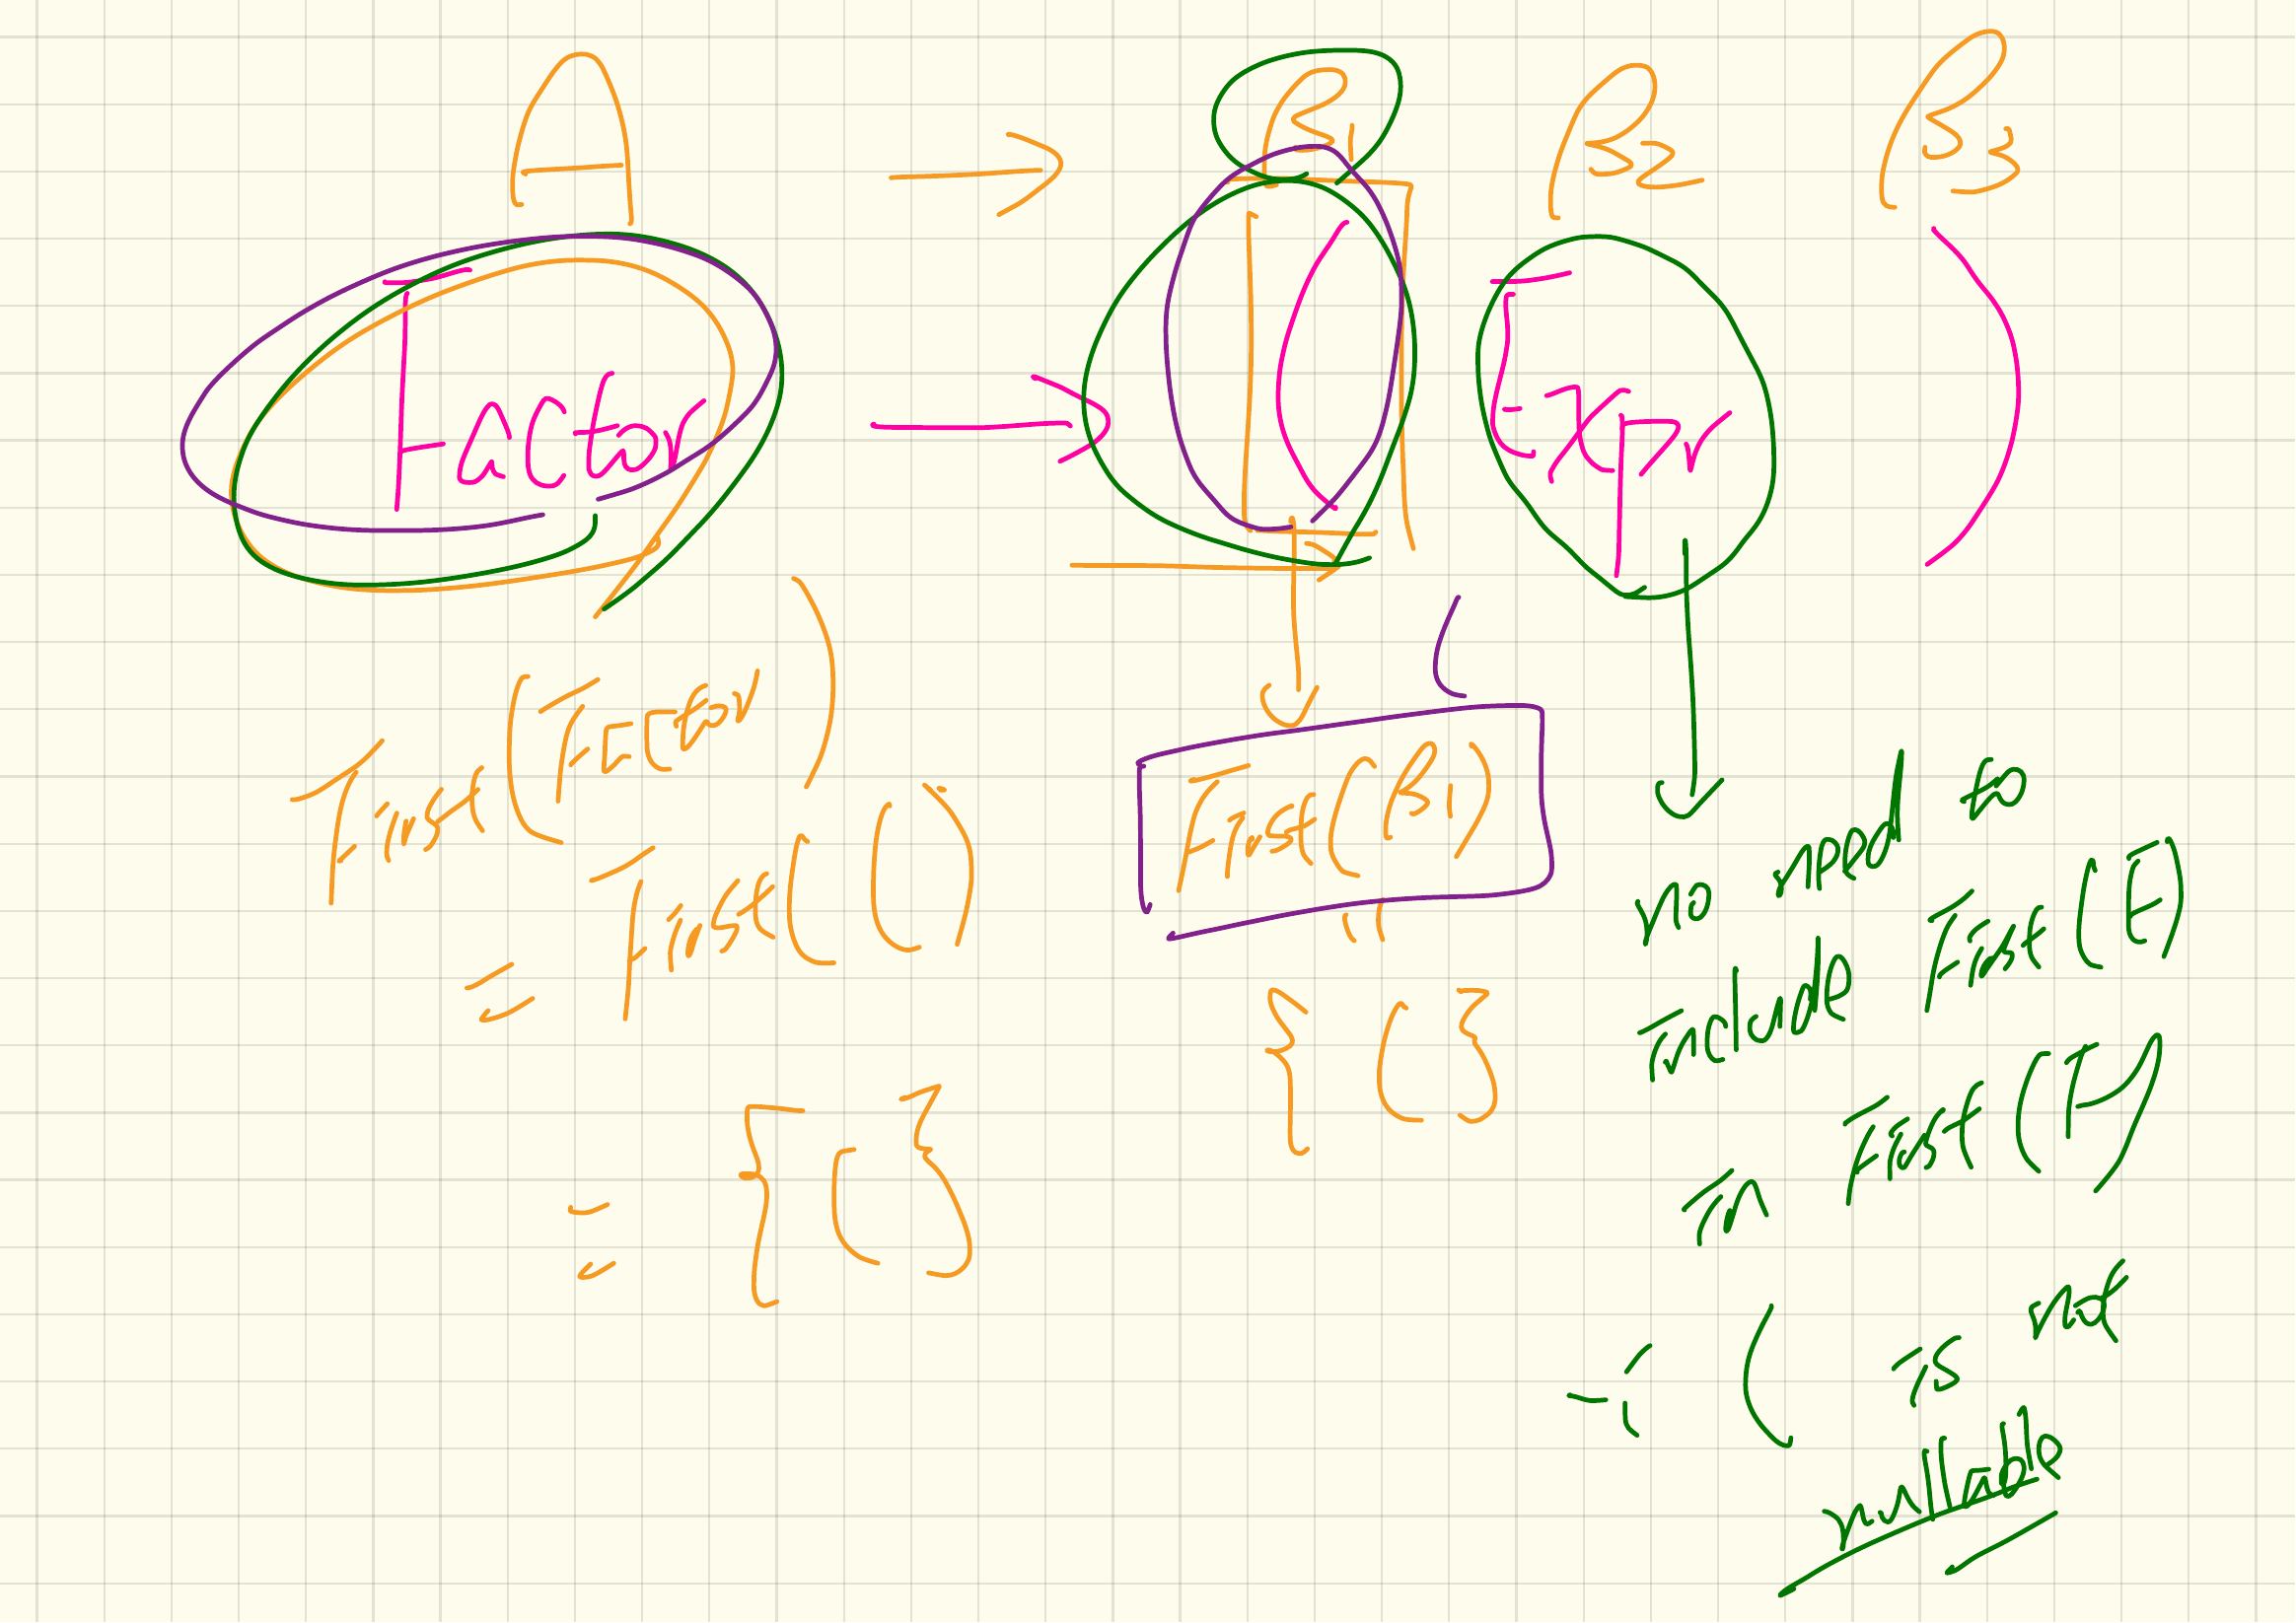 A → β1 β2 β3
Factor → ( Expr )
(
First(Factor)
= First( ( )
= { ( }
First(β1)
"
{ ( }
no need to
include First(E)
in First(F)
∵ ( is not
nullable